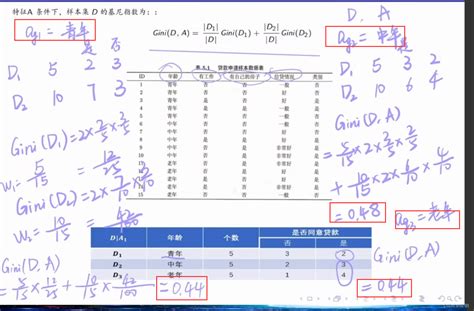 特征A 条件下，样本集 D 的基尼指数为：:
Gini(D, A) = |D1|/|D| Gini(D1) + |D2|/|D| Gini(D2)
ag1 = 青年
是 否
D1 5 2 3
D2 10 7 3
Gini(D1) = 2×2/5×3/5
W1 = 5/15 = 12/25
Gini(D2) = 2×7/10×3/10
W2 = 10/15
Gini(D, A)
= 5/15×12/25 + 10/15×42/100 = 0.44
表 5.1 贷款申请样本数据表
ID 年龄 有工作 有自己的房子 信贷情况 类别
1 青年 否 否 一般 否
2 青年 否 否 好 否
3 青年 是 否 好 是
4 青年 是 是 一般 是
5 青年 否 否 一般 否
6 中年 否 否 一般 否
7 中年 否 否 好 否
8 中年 是 是 好 是
9 中年 否 是 非常好 是
10 中年 否 是 非常好 是
11 老年 否 是 非常好 是
12 老年 否 是 好 是
13 老年 是 否 好 是
14 老年 是 否 非常好 是
15 老年 否 否 一般 否
D|A1 年龄 个数 是否同意贷款
否 是
D1 青年 5 3 2
D2 中年 5 2 3
D3 老年 5 1 4
D, A
ag2 = 中年
是 否
D1 5 3 2
D2 10 6 4
Gini(D, A)
= 5/15×2×3/5×2/5
+ 10/15×2×6/10×4/10
= 0.48
ag3 = 老年
Gini(D, A)
= 0.44